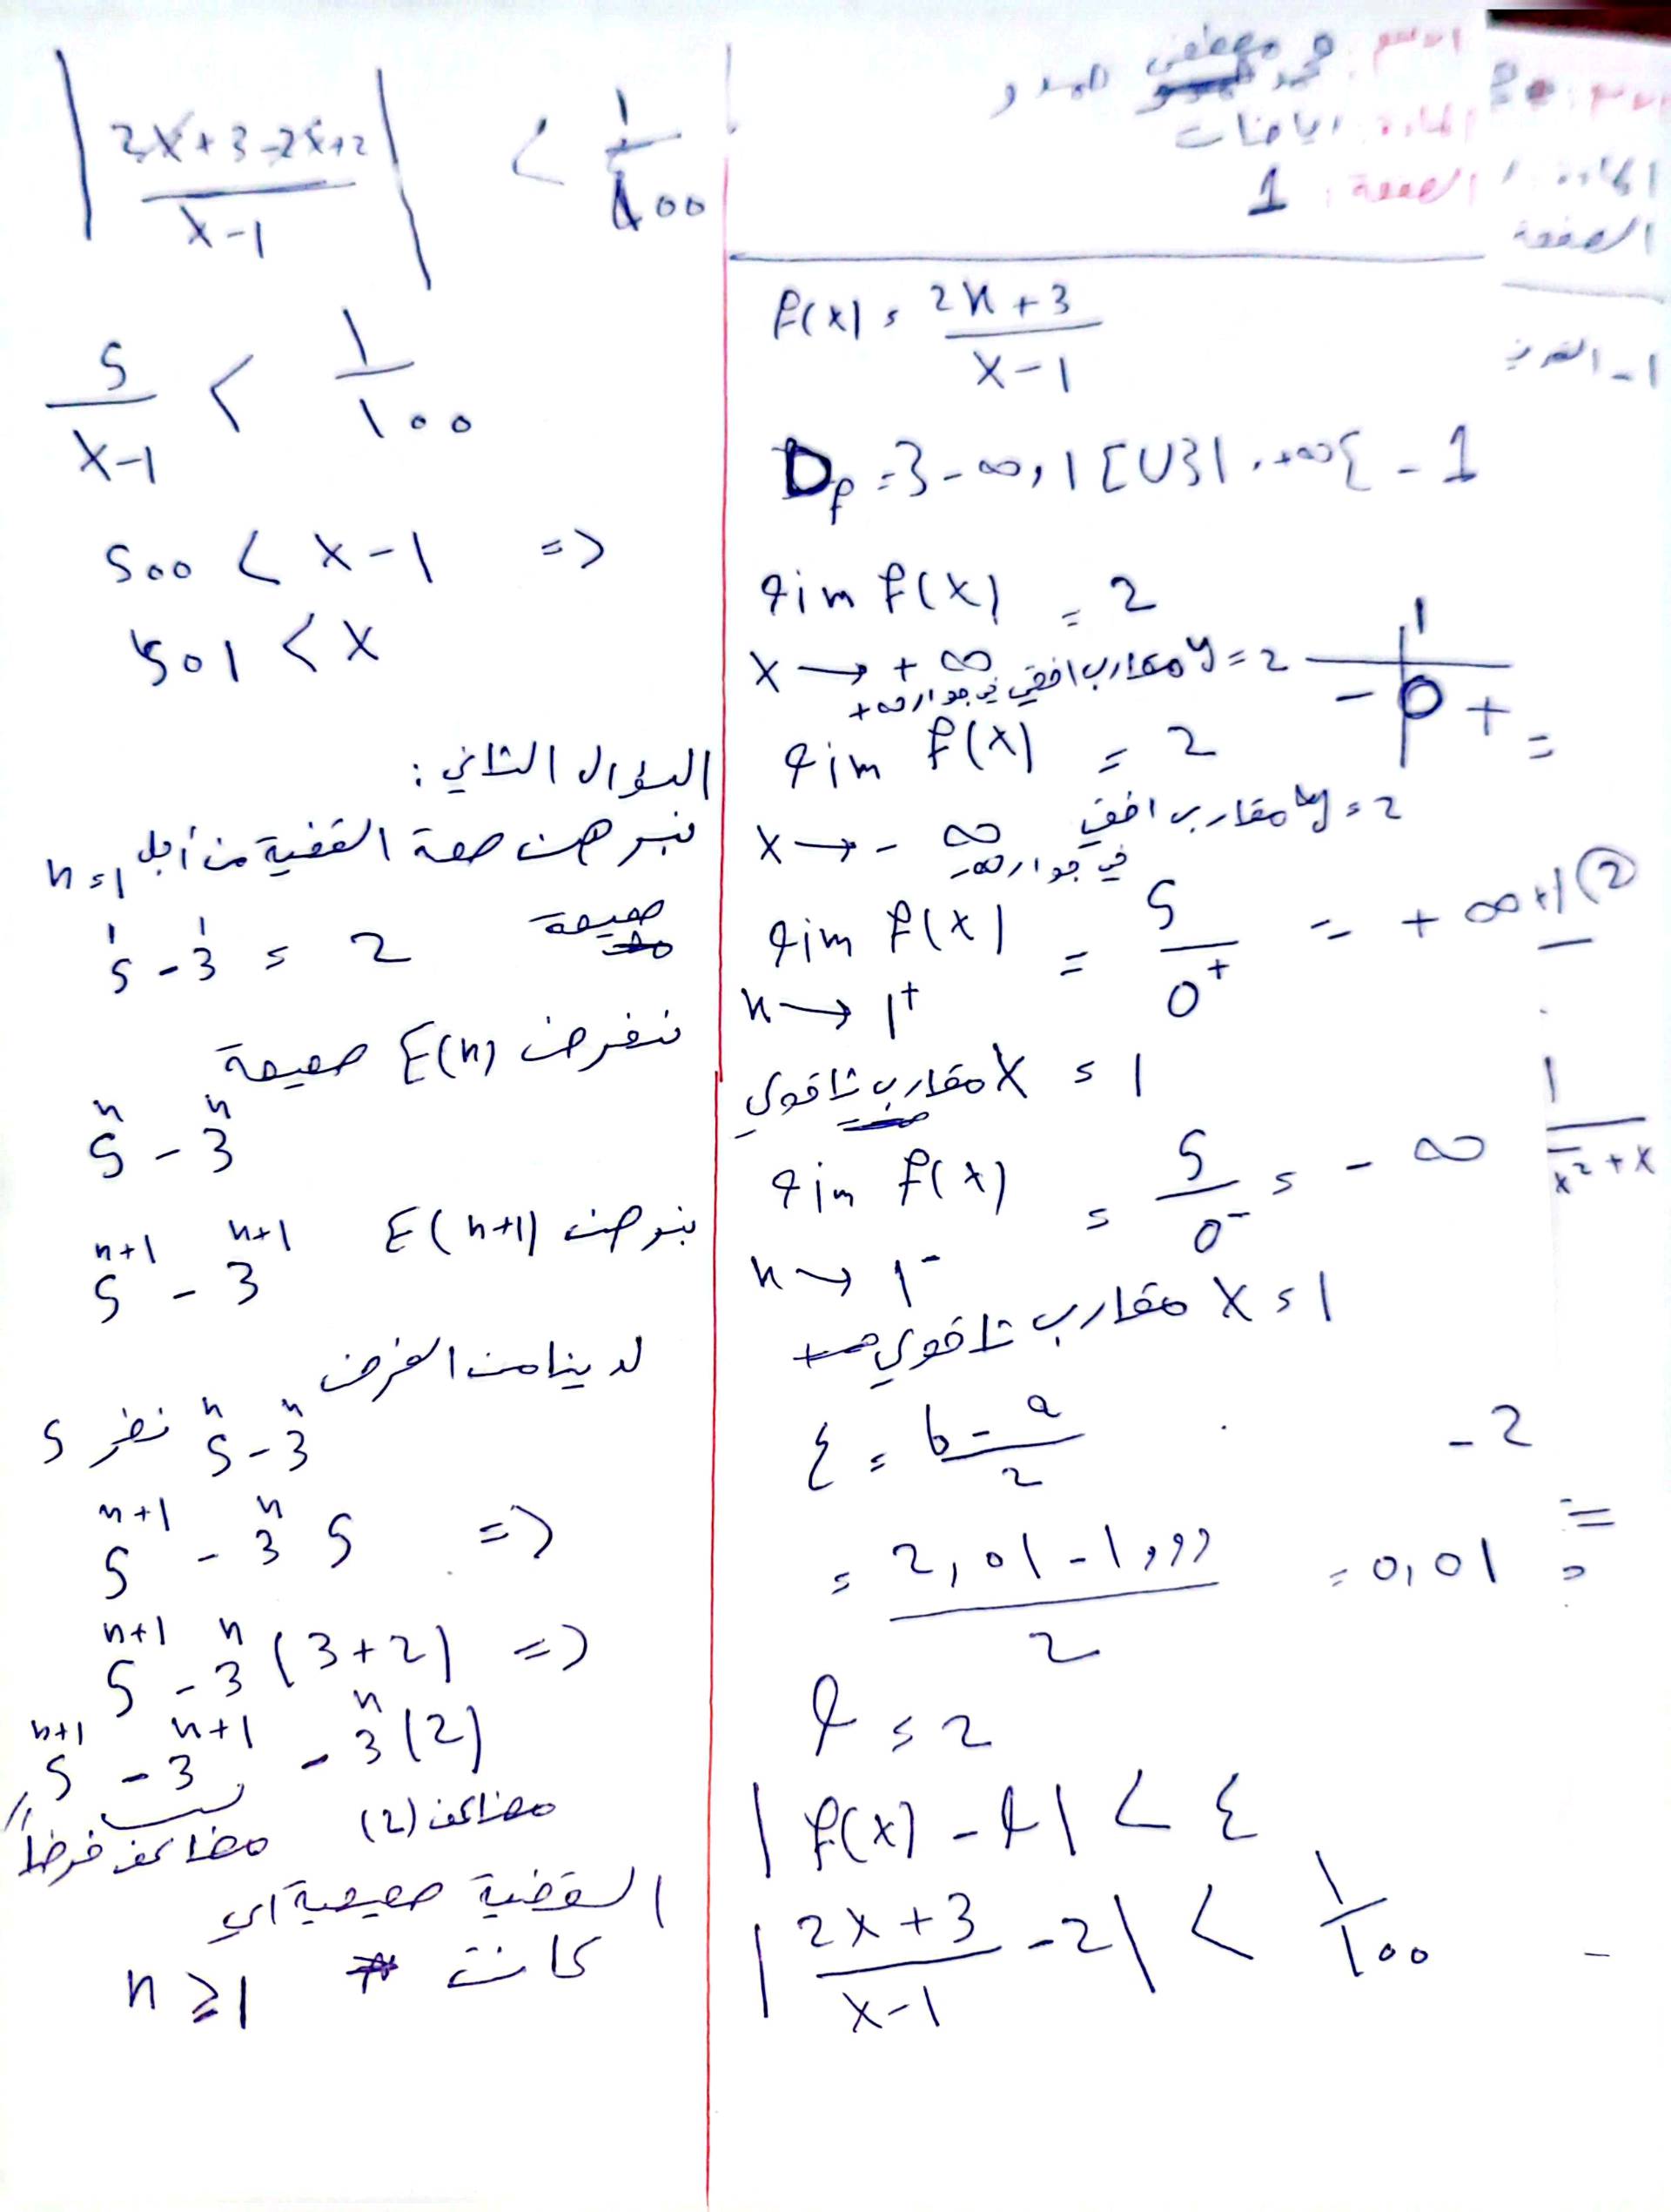 الاسم: محمد مصطفى
المادة: رياضيات
الصفحة: 1
f(x) = 2x+3 / x-1
D_f = ]-∞, 1[ U ]1, +∞[
lim f(x) = 2
x → +∞ y = 2 مقارب افقي في جوار +∞
lim f(x) = 2
x → -∞ y = 2 مقارب افقي
في جوار -∞
lim f(x) = 5 / 0+ = +∞
x → 1+
x = 1 مقارب شاقولي
lim f(x) = 5 / 0- = -∞
x → 1-
x = 1 مقارب شاقولي
ε = b-a / 2
= 2,01 - 1,99 / 2 = 0,01
l = 2
|f(x) - l| < ε
|2x+3 / x-1 - 2| < 1 / 100
|2x+3-2x+2 / x-1| < 1 / 100
5 / x-1 < 1 / 100
500 < x-1 =>
501 < x
السؤال الثاني:
نبرهن صحة القضية من أجل n = 1
5^1 - 3^1 = 2 صحيحة
نفرض E(n) صحيحة
5^n - 3^n
نبرهن E(n+1)
5^n+1 - 3^n+1
لدينا من الفرض
5^n - 3^n نضر 5
5^n+1 - 3^n 5 =>
5^n+1 - 3^n (3+2) =>
5^n+1 - 3^n+1 - 3^n (2)
مضاعف فرضاً مضاعف (2)
القضية صحيحة اي
كانت n ≥ 1